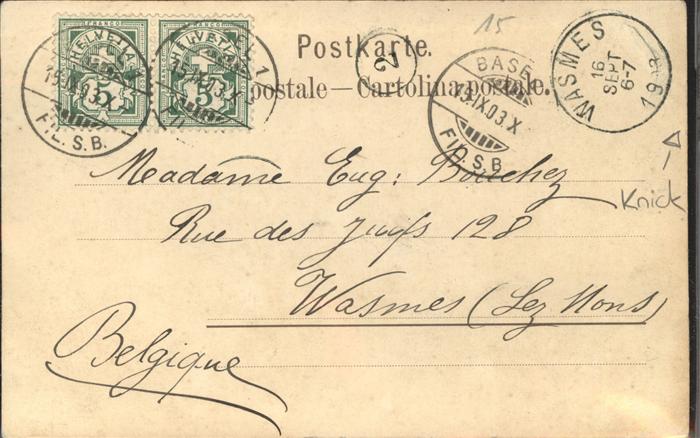 15
HELVETIA HELVETIA
FRANCO FRANCO
5 5
15.IX.03. 15.IX.03.
FIL.S.B.
Postkarte.
postale — Cartolina postale.
2
BASEL
15.IX.03.X
FIL.S.B.
WASMES
16
SEPT
6-7
Knick
Madame Eug: Bouchez
Rue des Juifs 128
Wasmes (Lez Mons)
Belgique